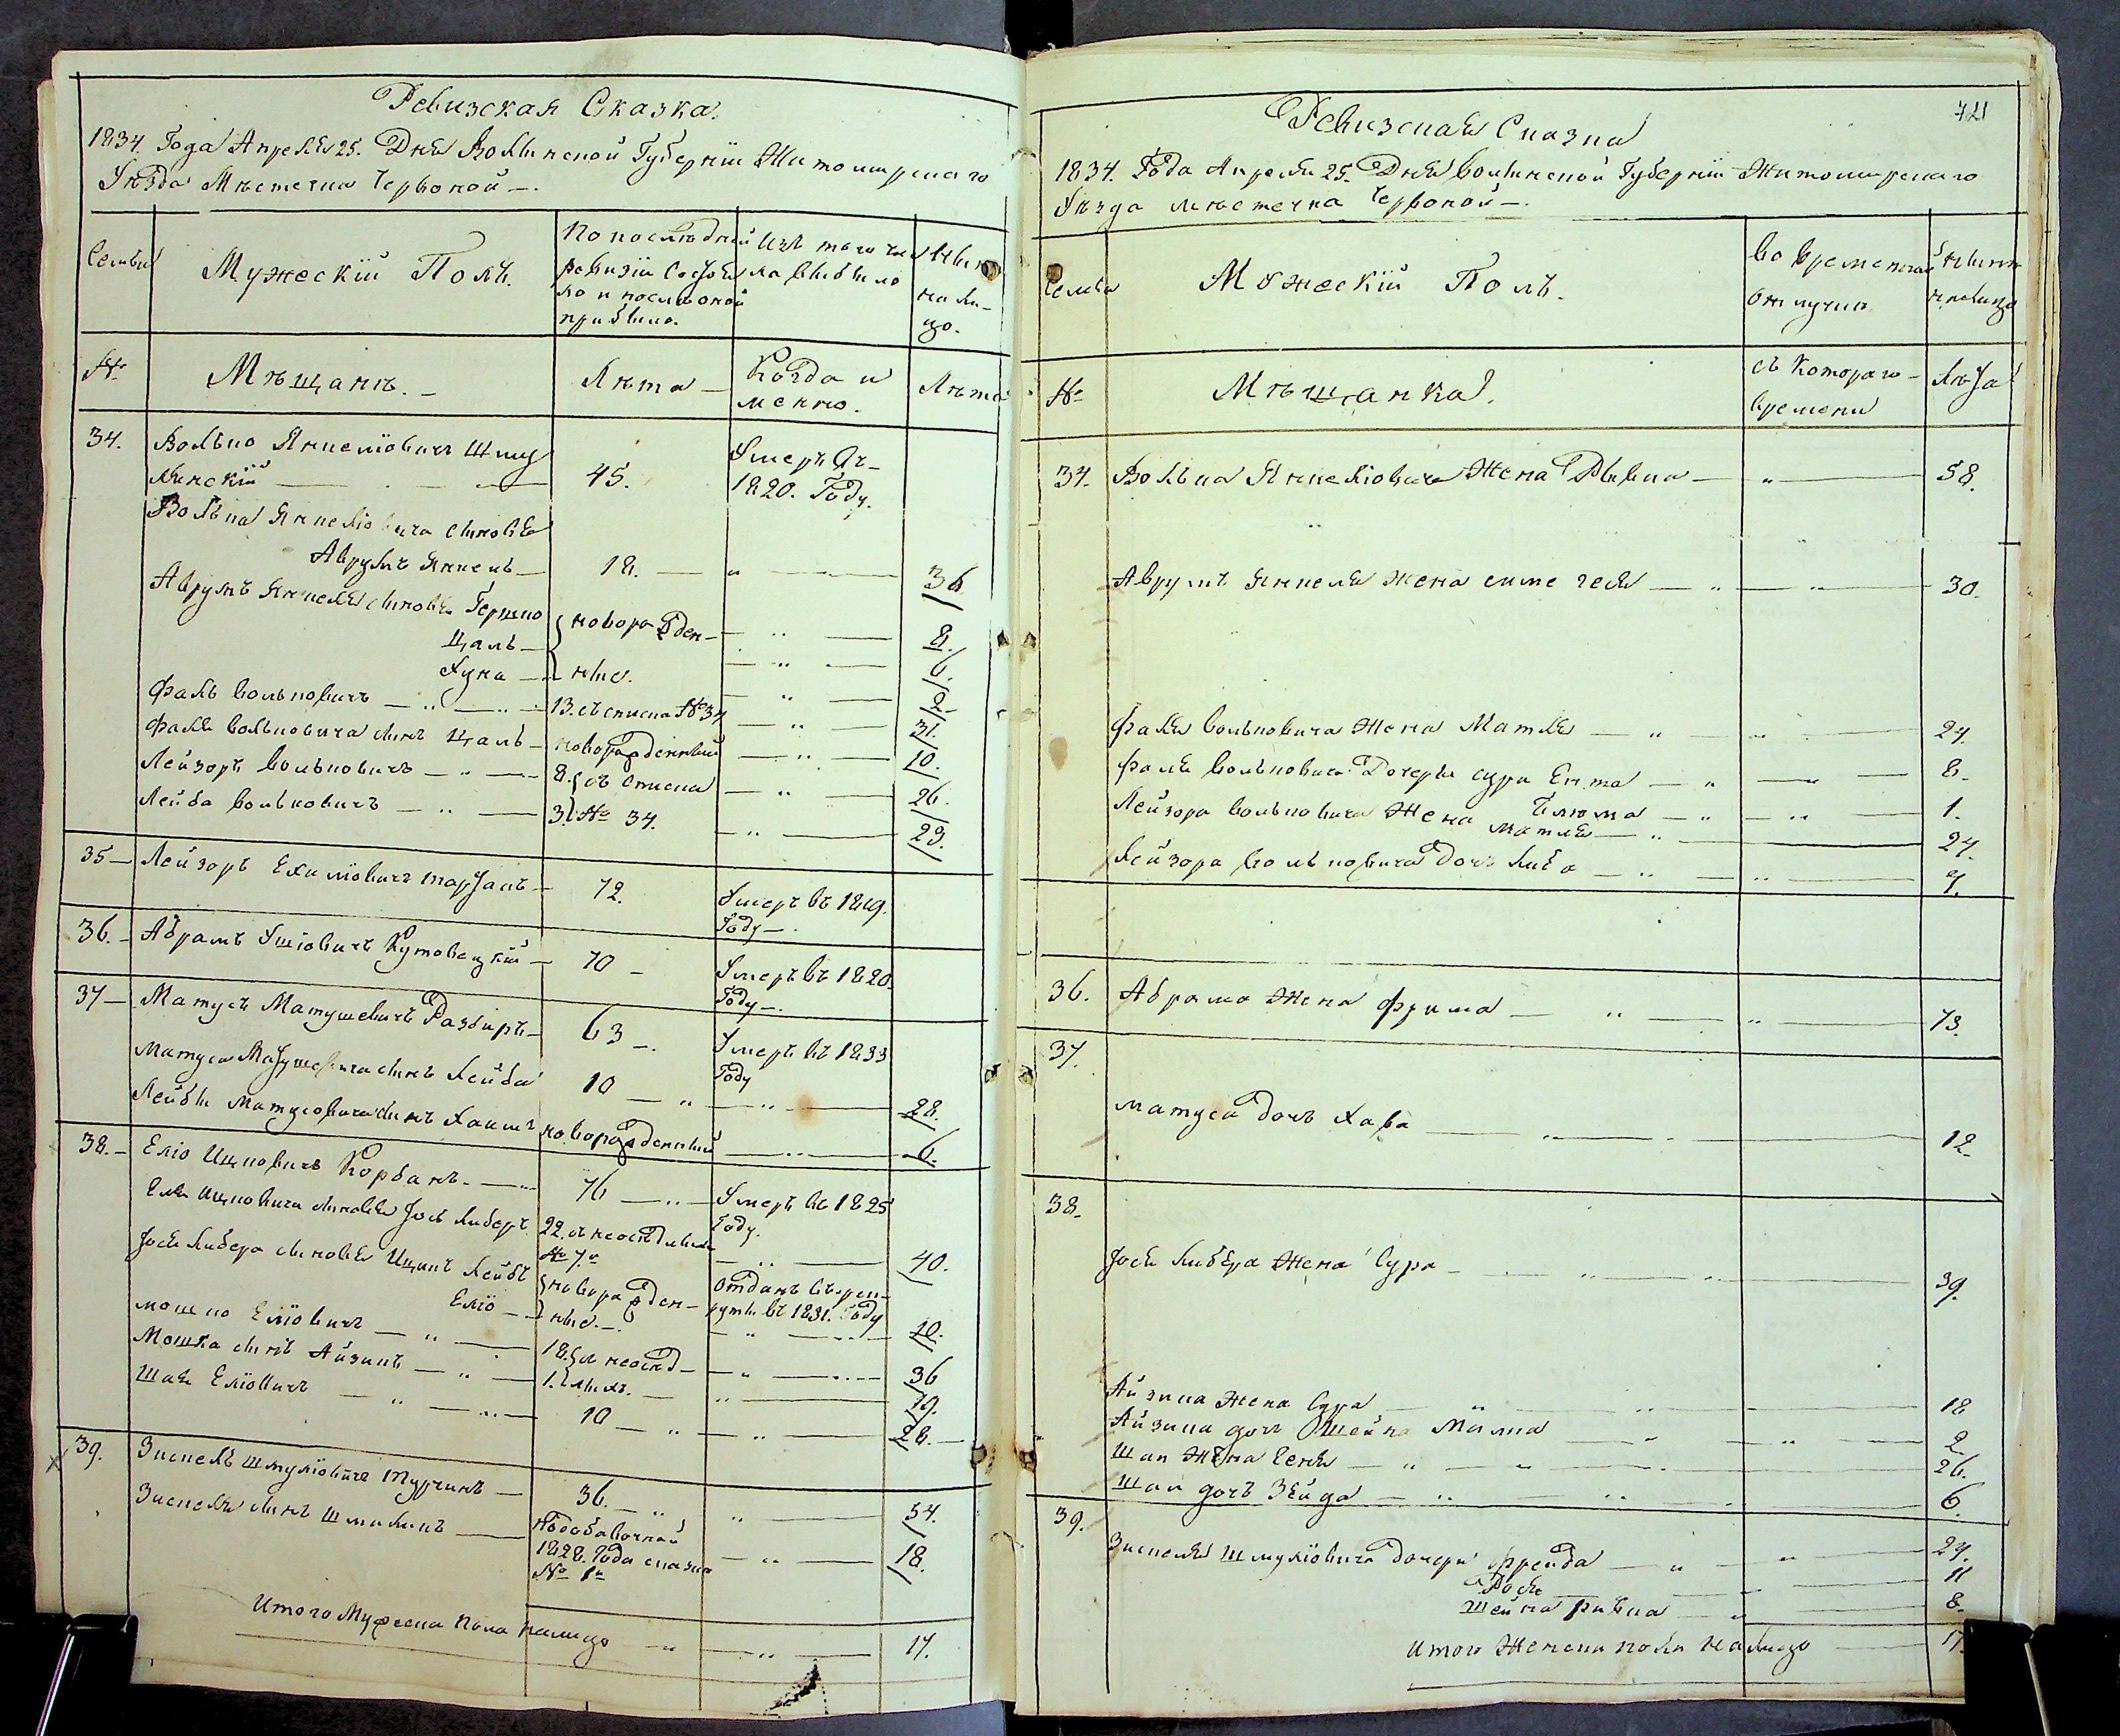 Ревизская Сказка.
1834. Года Апреля 25. Дня Волынской Губернiи Житомирскаго
Уѣзда Мѣстечка Червоной —.
Семьи
Мужескiй Полъ.
По последней
ревизiи состоя
ло и после оной
прибыло.
Изъ того чис
ла выбыло
Ныне
на ли-
цо.
№
Мѣщанъ. —
Лѣта —
Когда и
менно.
Лѣта
34.
Волько Янкелiовичъ Шму
лянскiй —
45.
Умеръ Въ
1820. Году.
Волька Янкелiовича сыновья
Аврумъ Янкель —
18. — „ —
36
Аврумъ Янкеля сыновья Гершко
новорожден-
8.
Цаль —
6.
Хуна —
ные.
2.
Фаль Вольковичъ — „ —
13. съ списка № 34
31.
Фаля Вольковича сынъ Цаль —
новорожденный
10.
Лейзоръ Вольковичъ — „ —
8. съ списка
26.
Лейба Вольковичъ — „ —
3. № 34.
23.
35 —
Лейзоръ
72.
Умеръ въ 1819.
Году —.
36. —
Абрамъ Ушiовичъ Кутовецкiй —
70 —
Умеръ въ 1820.
Году —.
37 —
Матусъ Матушевичъ Разбиръ —
63 —.
Умеръ въ 1833
Году
Матуса Матушевича сынъ Лейба
10 — „ —
28.
Лейбы Матусовича сынъ Хаимъ
новорожденный
6.
38. —
Елiо Ицковичъ Корбанъ. —
76 — „ —
Умеръ въ 1825
Году.
Еля Ицковича сыновья Iось Либеръ
22. съ
№ 7.
40.
Iося Либера сыновья Ицикъ Лейбъ
новорожден-
Отданъ въ рек-
руты въ 1831. Году
Елiо —
ные. —.
10.
Мошко Елiовичъ — „ —
18.
36
Мошка сынъ Айзикъ — „ —
1.
19.
Шая Елiовичъ — „ —
10 — „ —
28. —
39.
Зиспель Шмулiовичъ Турчинъ —
36. — „
54.
Зиспеля сынъ Шмиликъ —
Подобавочной
1828. Года сказки
№ 1
18.
Итого Мужеска пола налицо — „ —
17.
721
Ревизская Сказка
1834. Года Апреля 25. Дня Волынской Губернiи Житомирскаго
Уѣзда Мѣстечка Червоной —.
Семьи
Мужескiй Полъ.
Во временной
отлучке
Ныне
налицо
№
Мѣщанка.
съ Котораго —
времени
Лѣта
34.
Волька Янкелiовича Жена Рывка — „ —
58.
Аврумъ Янкеля жена симе геся — „ —
30.
Фаля Вольковича Жена Матля — „
24.
Фаля Вольковича Дочеры сура Ента — „
8.
Блюма — „
1.
Лейзора Вольковича Жена Матля — „
24.
Лейзора Вольковича дочъ Либа — „
7.
36.
Абрама Жена Фрима — „ —
73.
37.
Матуса дочъ Хава —
12.
38.
Iося Либера Жена Сура —
39.
Айзика Жена Сура — „
18
Айзика дочъ Шейна Малма
2.
Шаи Жена Геня — „ —
26.
Шаи дочъ Зейда — „
6.
39.
Зиспеля Шмулiовича дочери Фрейда — „
24.
Рося
11
Шейна ривка — „
8.
Итого Женска пола налицо
17.